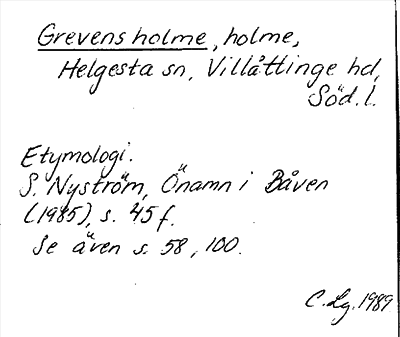 Grevens holme, holme,
Helgesta sn, Villåttinge hd,
Söd. l.
Etymologi.
S. Nyström, Önamn i Båven
(1985), s. 45 f.
Se även s. 58, 100.
C. Lg. 1989